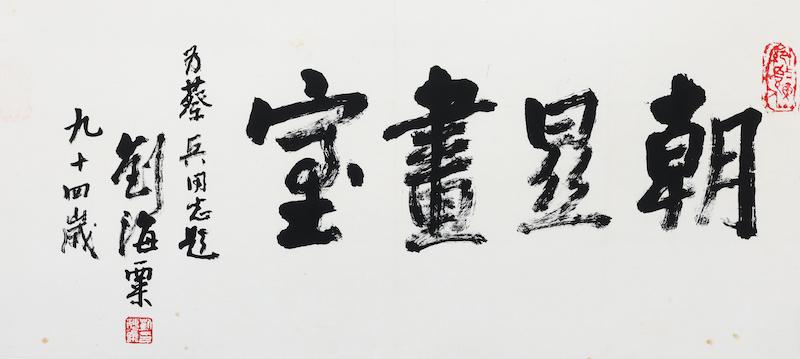 朝昱畫室
为蔡兵同志題
劉海粟
九十四歲